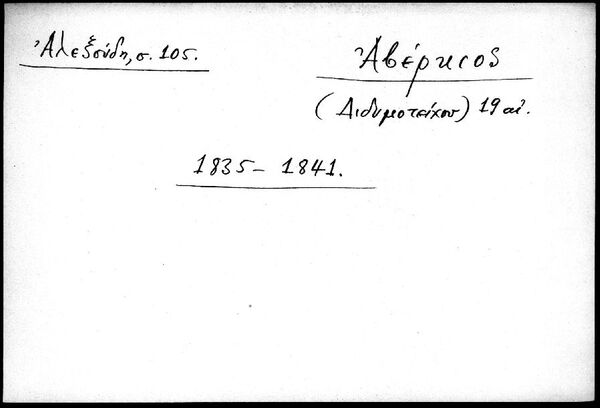 Ἀλεξούδη, σ. 105.
Ἀβέρκιος
(Διδυμοτείχου) 19 αἰ.
1835 – 1841.